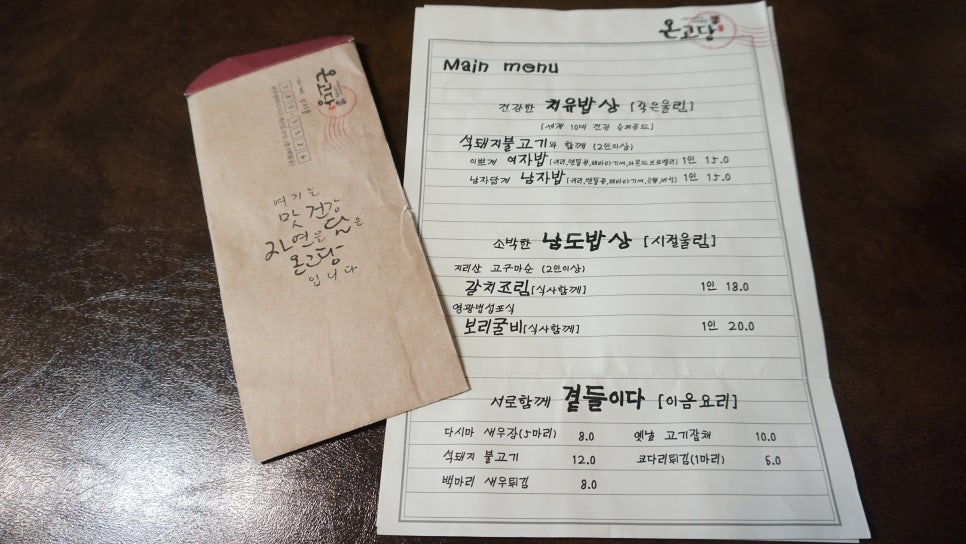 온고당
여기는
맛 건강
자연을 담은
온고당
입니다
온고당
Main menu
건강한 치유밥상 [작은울림]
[세계 10대 건강 슈퍼푸드]
석돼지불고기와 함께 (2인이상)
이쁘게 여자밥 [귀리,렌틸콩,해바라기씨,아몬드,브로콜리] 1인 15.0
남자답게 남자밥 [귀리,렌틸콩,해바라기씨,은행,버섯] 1인 15.0
소박한 남도밥상 [시절울림]
지리산 고구마순 (2인이상)
갈치조림[식사함께] 1인 18.0
영광법성포식
보리굴비[식사함께] 1인 20.0
서로함께 곁들이다 [이음요리]
다시마 새우장(5마리) 8.0 옛날 고기잡채 10.0
석돼지 불고기 12.0 코다리튀김(1마리) 6.0
백마리 새우튀김 8.0